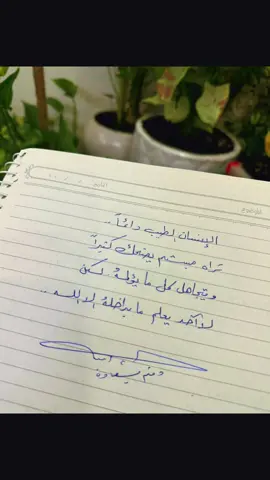 الإنسان الطيب دائماً..
تراه مبتسم يضحك كثيراً
ويتجاهل كل ما يؤلمهُ لكن
لا أحد يعلم ما بداخلهُ إلا الله..